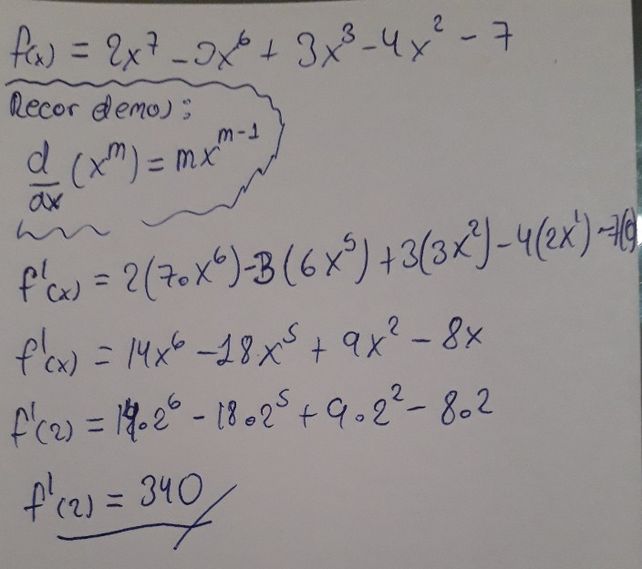 f(x) = 2x⁷ - 3x⁶ + 3x³ - 4x² - 7
Recordemos:
d/dx (xᵐ) = mxᵐ⁻¹
f'(x) = 2(7·x⁶) - 3(6x⁵) + 3(3x²) - 4(2x¹) - 7(0)
f'(x) = 14x⁶ - 18x⁵ + 9x² - 8x
f'(2) = 14·2⁶ - 18·2⁵ + 9·2² - 8·2
f'(2) = 340